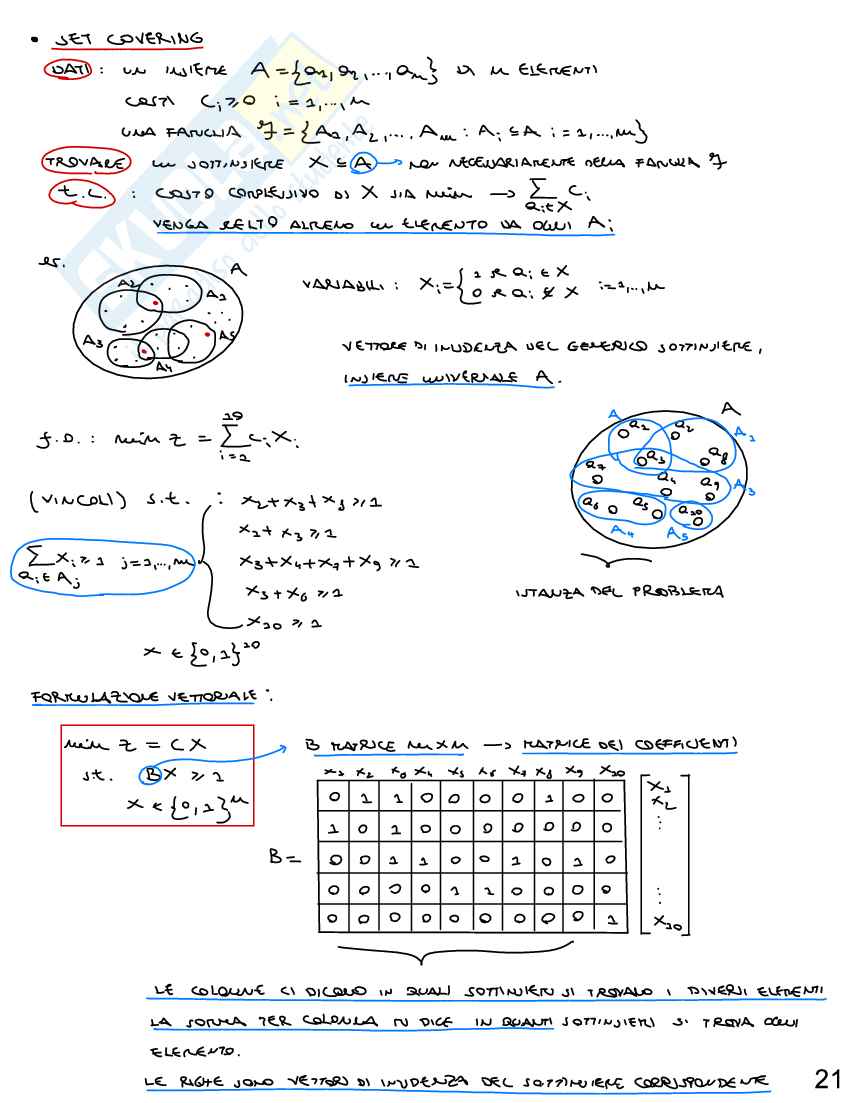 • SET COVERING
DATI : UN INSIEME A = {a1, a2, ..., an} DI n ELEMENTI
COSTI Ci ≥ 0 i = 1, ..., n
UNA FAMIGLIA F = {A1, A2, ..., Am : Ai ⊆ A i = 1, ..., m}
TROVARE UN SOTTINSIEME X ⊆ A → NON NECESSARIAMENTE DELLA FAMIGLIA F
t.c. : COSTO COMPLESSIVO DI X SIA min → Σ ai∈X Ci
VENGA SCELTO ALMENO UN ELEMENTO DA OGNI Ai
es.
A
A2
A1
A3
A5
A4
VARIABILI : Xi = { 1 se ai ∈ X
0 se ai ∉ X i = 1, ..., n
VETTORE DI INCIDENZA DEL GENERICO SOTTINSIEME,
INSIEME UNIVERSALE A.
f.o. : min z = Σ i=1 10 Ci Xi
A
A
a1 a2
A2
a3 a8
a7 a4 a9
A3
a6 a5 a10
A4 A5
(VINCOLI) s.t. : x2 + x3 + x8 ≥ 1
x1 + x3 ≥ 1
Σ ai∈Aj xi ≥ 1 j = 1, ..., m
x3 + x4 + x7 + x9 ≥ 1
x5 + x6 ≥ 1
x10 ≥ 1
x ∈ {0,1}^10
ISTANZA DEL PROBLEMA
FORMULAZIONE VETTORIALE :
min z = CX
st. BX ≥ 1
X ∈ {0,1}^n
B MATRICE m×n → MATRICE DEI COEFFICIENTI
x1 x2 x3 x4 x5 x6 x7 x8 x9 x10
0 1 1 0 0 0 0 1 0 0
1 0 1 0 0 0 0 0 0 0
B =
0 0 1 1 0 0 1 0 1 0
0 0 0 0 1 1 0 0 0 0
0 0 0 0 0 0 0 0 0 1
x1
x2
⋮
⋮
x10
LE COLONNE CI DICONO IN QUALI SOTTINSIEMI SI TROVANO I DIVERSI ELEMENTI
LA SOMMA PER COLONNA CI DICE IN QUANTI SOTTINSIEMI SI TROVA OGNI
ELEMENTO.
LE RIGHE SONO VETTORI DI INCIDENZA DEL SOTTINSIEME CORRISPONDENTE
21